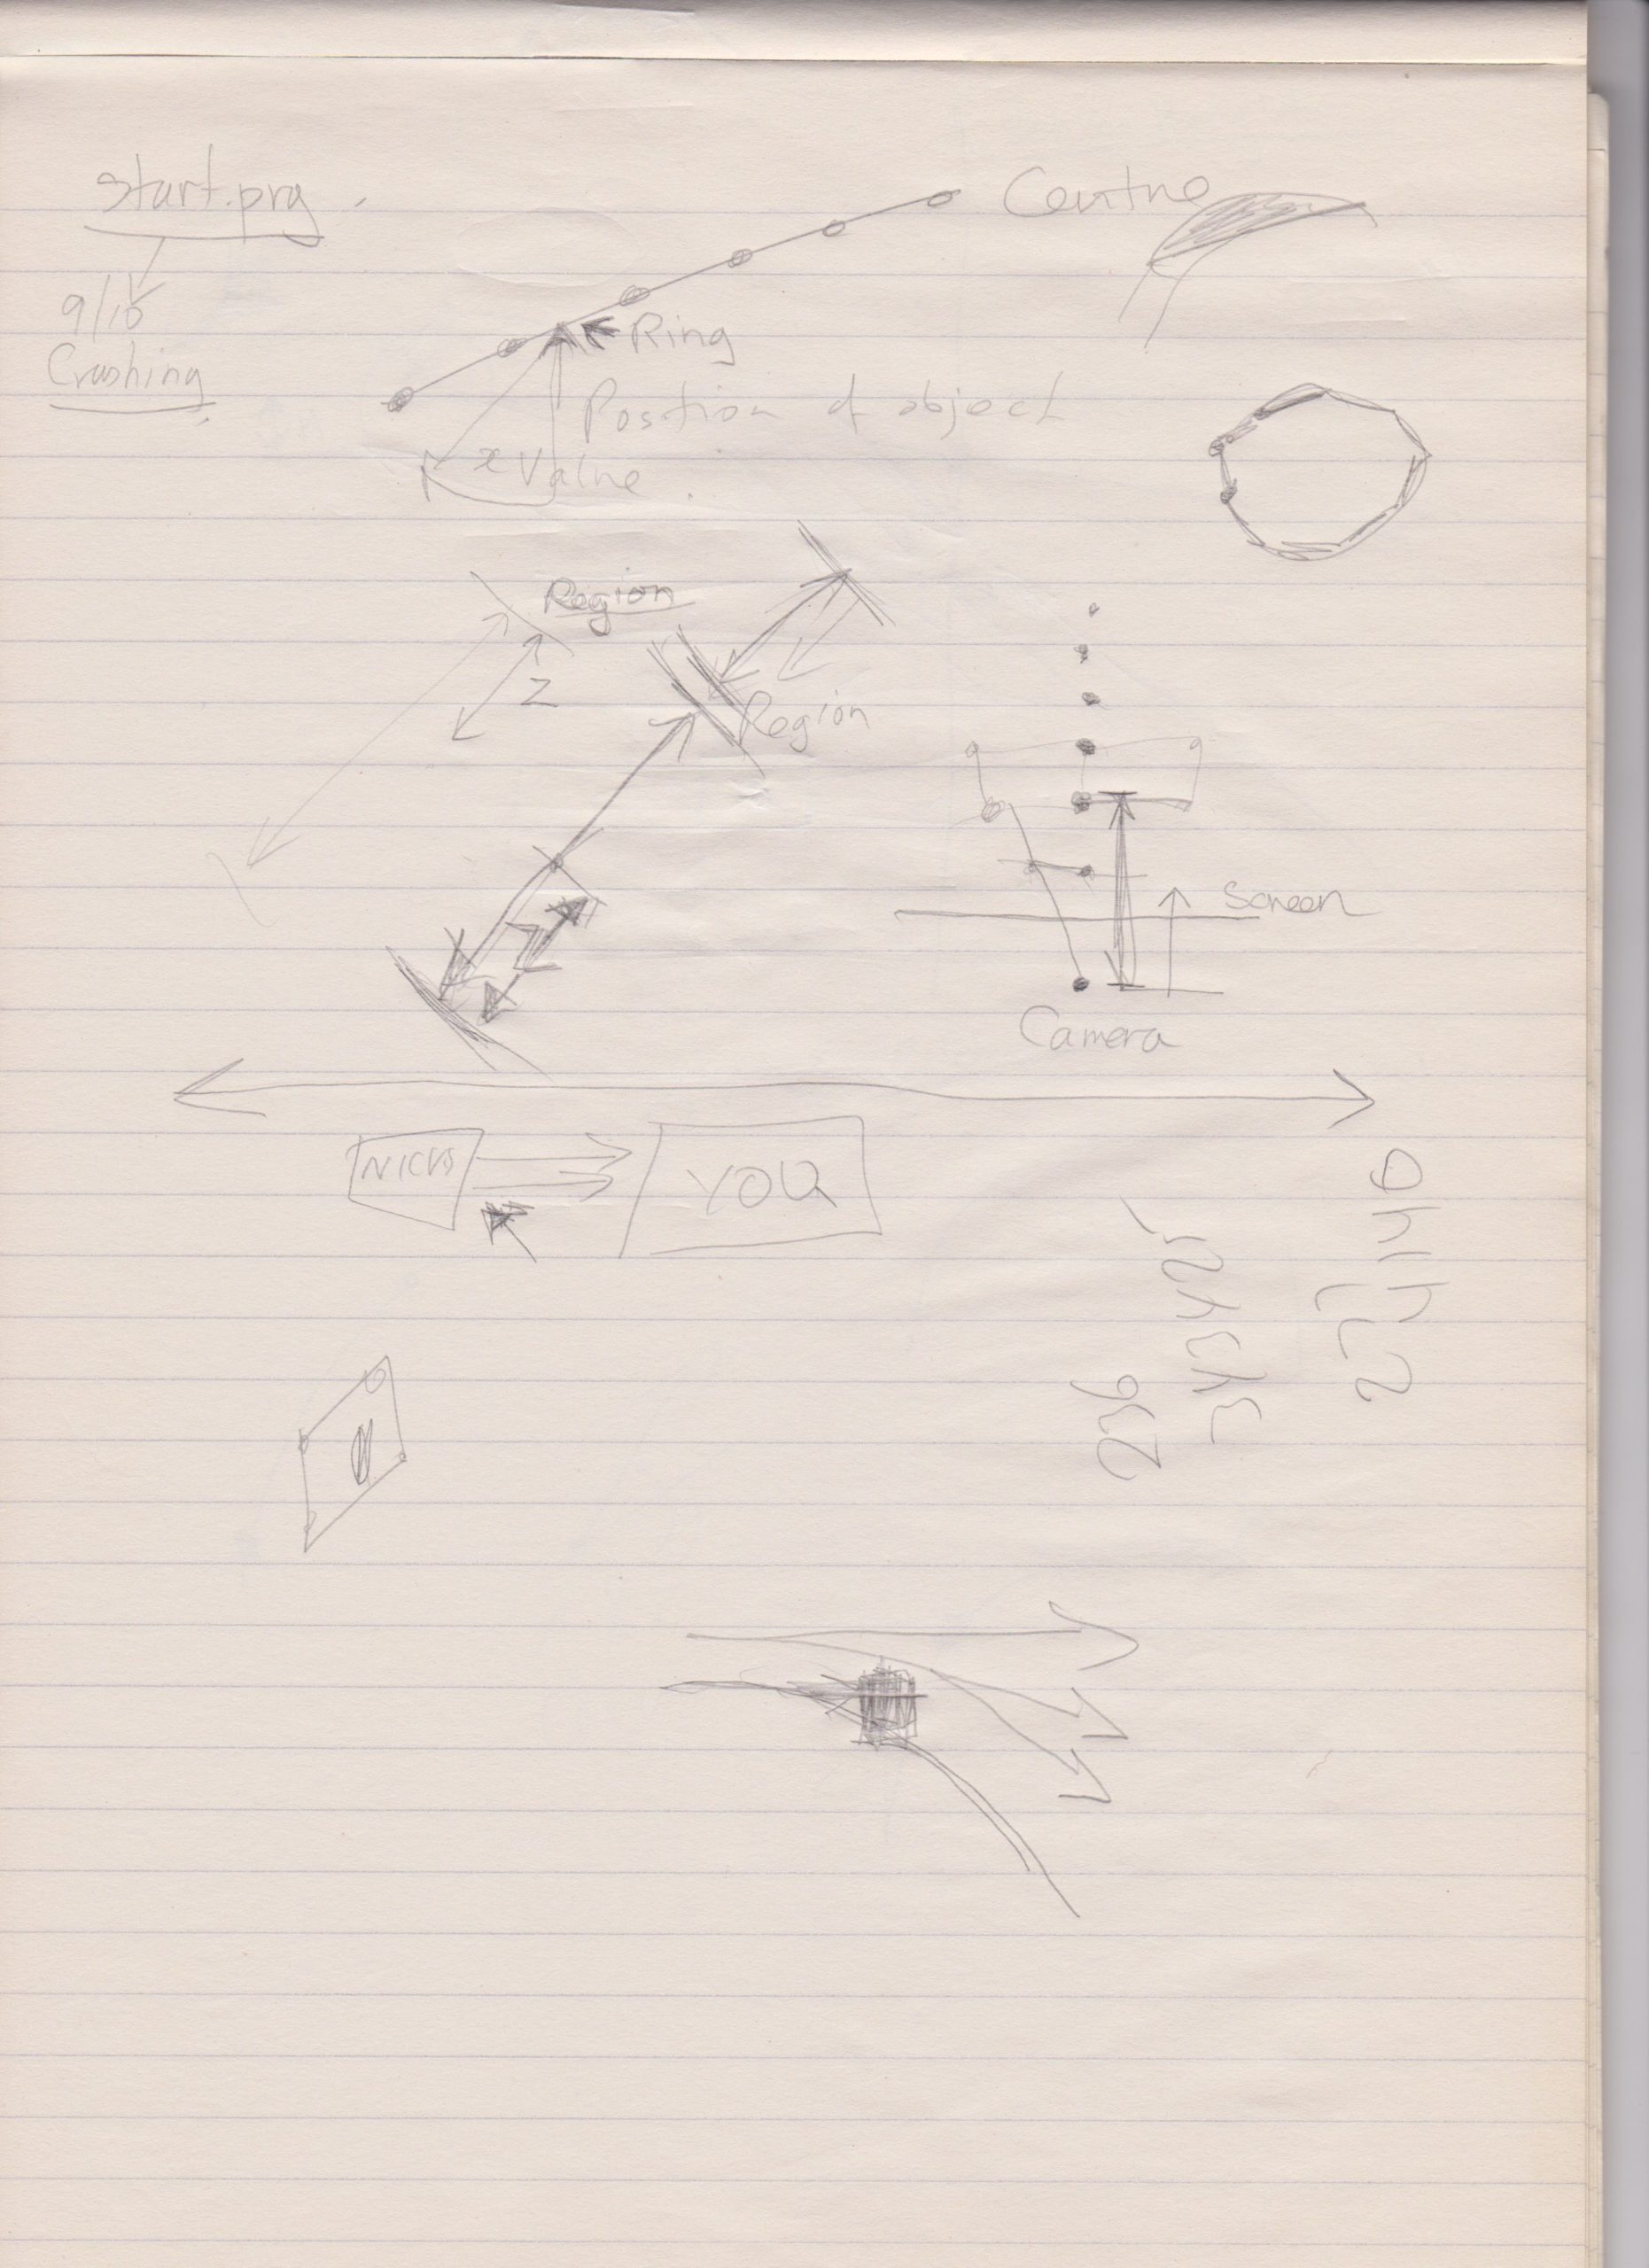 start.prg
Centre
9/10
Crashing
Ring
Position of object
x Value
Region
Z
Region
Z
Screen
Camera
YOU
236